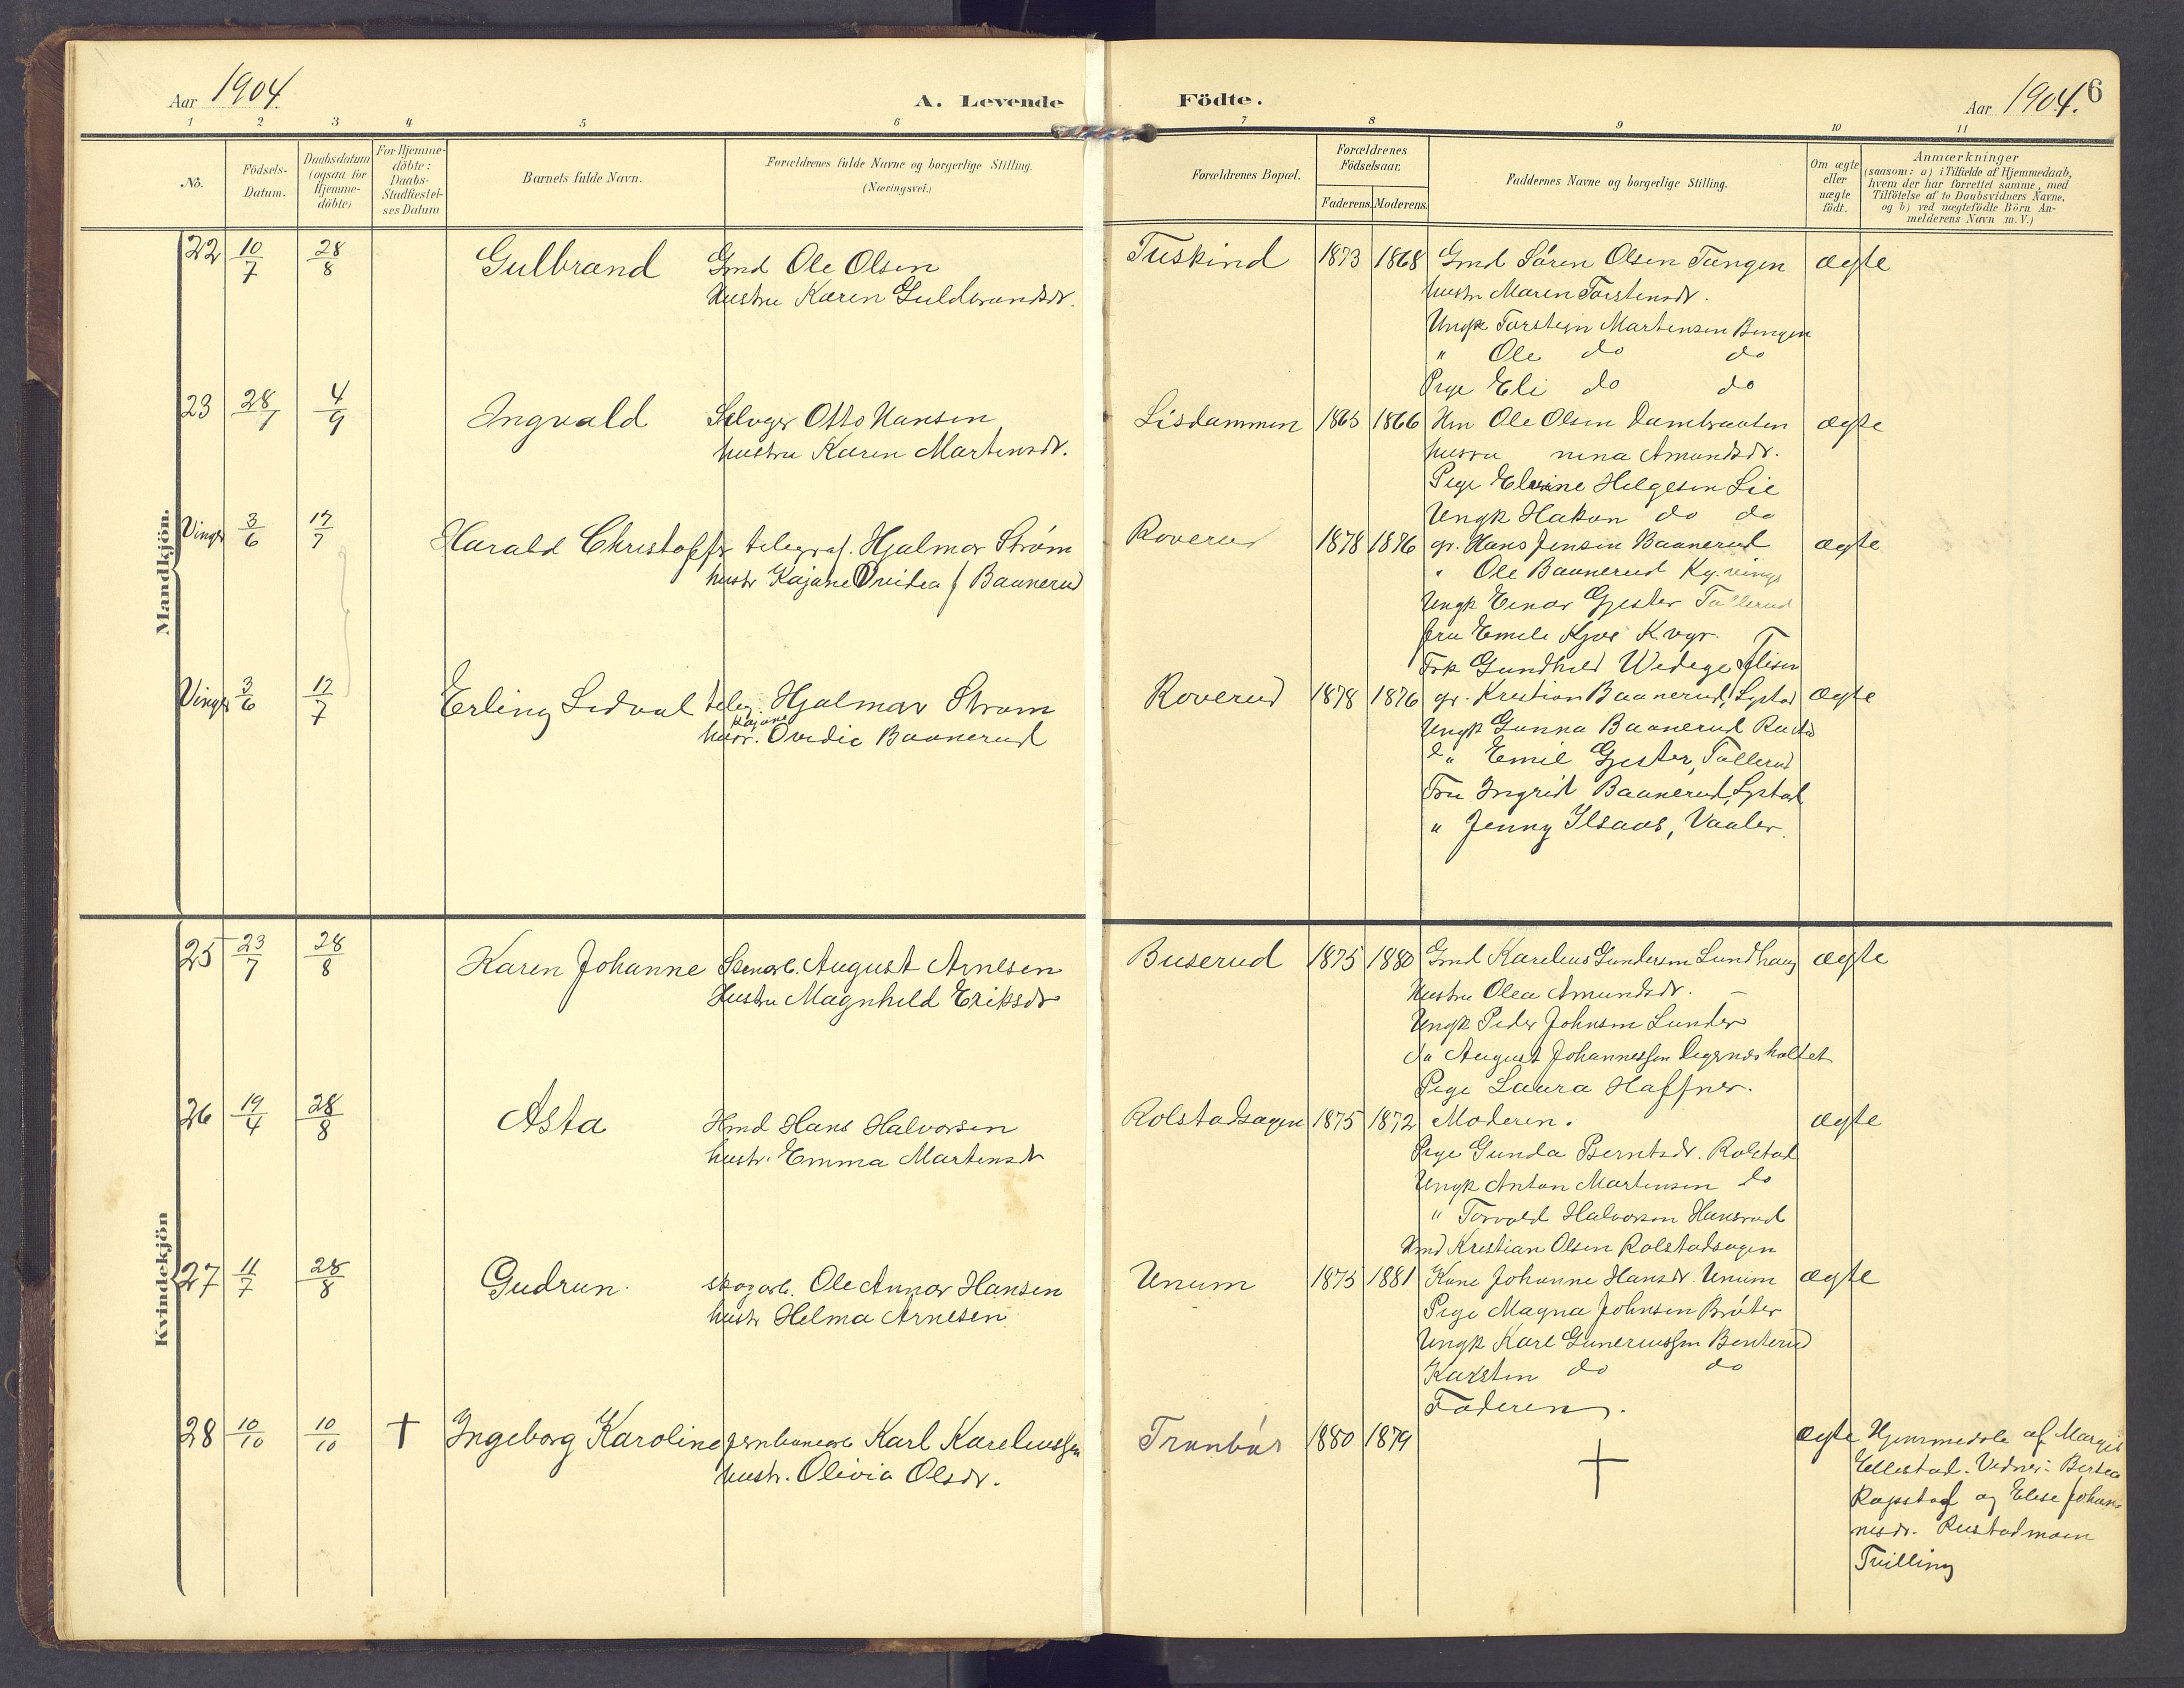 Aar 1904.
A. Levende Födte.
Aar 1904. 6
1 2 3 4 5 6 7 8 9 10 11
No.
Födsels-Datum.
Daabsdatum (ogsaa for Hjemme-döbte)
For Hjemme-döbte: Daabs-Stadfæstel-ses Datum
Barnets fulde Navn.
Forældrenes fulde Navne og borgerlige Stilling. (Næringsvei.)
Forældrenes Bopæl.
Forældrenes Födselsaar.
Faderens. Moderens.
Faddernes Navne og borgerlige Stilling.
Om ægte eller uægte födt.
Anmærkninger
(saasom: a) i Tilfælde af Hjemmedaab,
hvem der har forrettet samme, med
Tilföielse af to Daabsvidners Navne,
og b) ved uægtefödte Börn An-
melderens Navn m.V.)
Mandkjön.
22 10/7 28/8 Gulbrand Gmd Ole Olsen Tuskind 1873 1868 Gmd Sören Olsen Tangen ægte
Hustru Karen Guldbrandsdr. hustr Maren Torstensdr.
Ungk Torstein Martinsen Bengen
" Ole do do
Pige Eli do do
23 28/7 4/9 Ingvald Selveger Otto Hansen Lisdammen 1865 1866 Hm Ole Olsen Dambraaten ægte
hustru Karen Martinsdr. nina Amundsdr.
Pige Helgesen Lie
Ungk Hakon do do
Vinger 3/6 17/7 Harald Christoffer telegraf. Hjalmar Strøm Roverud 1878 1876 gr. Hans Jensen Baanerud ægte
hustr Kajane Ovidea f Baanerud " Ole Baanerud Kg.vinger
Ungk Einar Gjester Tallerud
fru Emile Kjos K.vgr.
Frk Gundhild Wedege Flisen
Vinger 3/6 17/7 Erling Sedval teleg. Hjalmar Strøm Roverud 1878 1876 gr. Kristian Baanerud, Lystad ægte
Kajane
hustr. Ovidie Baanerud Ungk Gunna Baanerud Rusta
" Emil Gjester, Tallerud
Fru Ingrid Baanerud, Lystad
" Jenny Ilsaas, Vaaler.
Kvindekjön
25 23/7 28/8 Karen Johanne Stenarb. August Arnesen Buserud 1875 1880 Gmd Karelius Gundersen Lundhaug ægte
Hustru Magnhild Eriksdr Hustru Olea Amundsdr. –
Ungk Peder Johnsen Lunder
do August Johannessen Digernesholtet
Pige Laura Haffner.
26 19/4 28/8 Asta Hmd Hans Halvorsen Rolstadsagen 1875 1872 Moderen. ægte
hustr. Emma Martinsdr Pige Gunda Berntsdr. Rolstad
Ungk Anton Martinsen do
" Torvald Halvorsen Hansrud
Hmd Kristian Olsen Rolstadsagen
27 11/7 28/8 Gudrun. skogarb. Ole Annar Hansen Unum 1875 1881 Kone Johanne Hansdr Unum ægte
hustr Helma Arnesen Pige Magna Johnsen Bråten
Ungk Karl Guneriussen Benterud
Karsten do do
Faderen.
28 10/10 10/10 † Ingeborg Karoline jernbanearb Karl Kareliussen Tranbär 1880 1879 † ægte Hjemmedøbt af Margit
hustr. Olivia Olsdr. Ellestad. Vidner: Bertea
Rapstad og Elise Johan-
nesdr. Rustadmoen
Tvilling